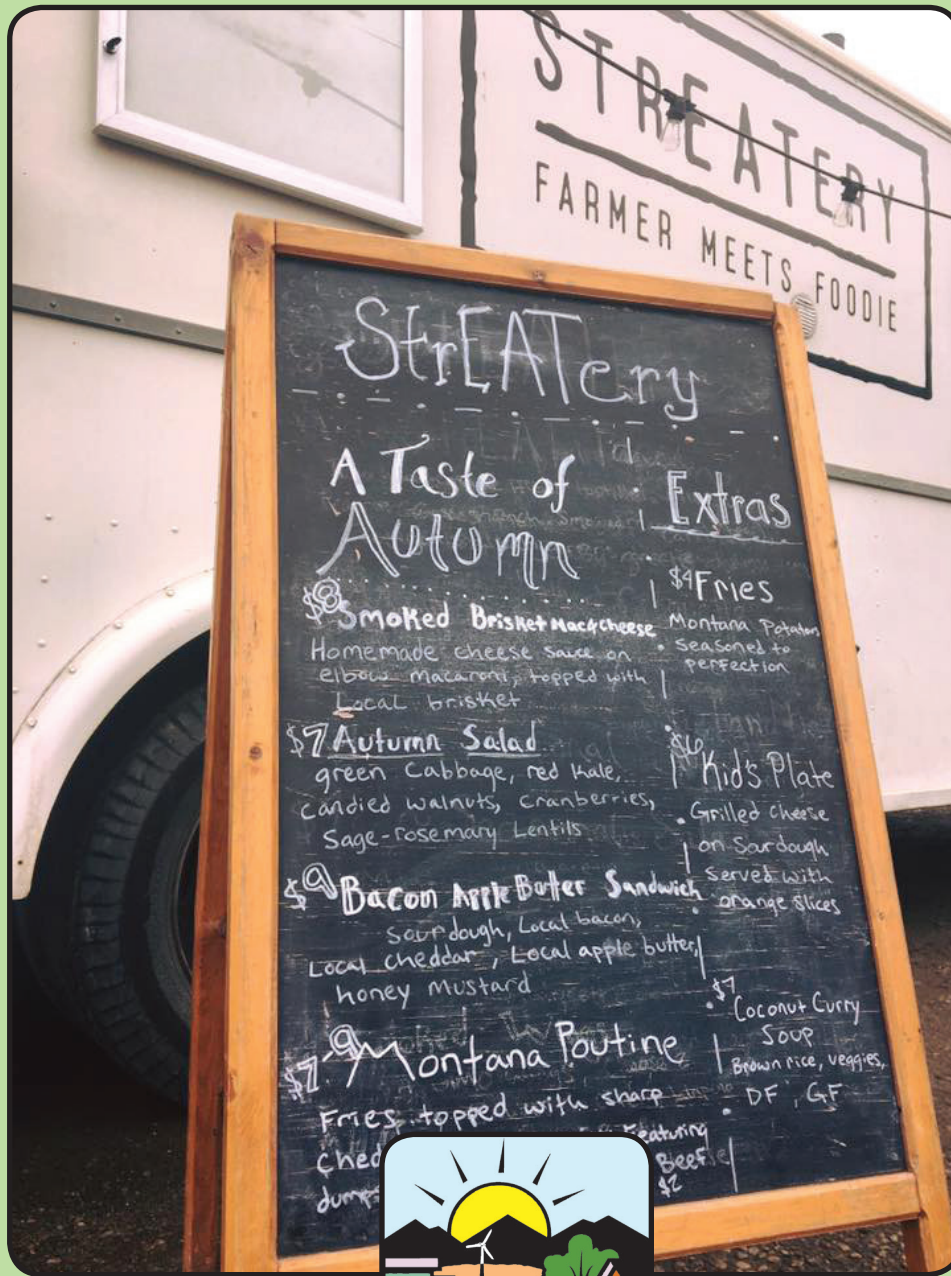 STREATERY
FARMER MEETS FOODIE
StrEATery
A Taste of
Autumn
$8 Smoked Brisket Mac & Cheese
Homemade cheese sauce on
elbow macaroni, topped with
Local brisket
$7 Autumn Salad
green Cabbage, red Kale,
Candied walnuts, Cranberries,
Sage-rosemary Lentils
$9 Bacon Apple Butter Sandwich
Sourdough, Local bacon,
Local cheddar, Local apple butter,
honey mustard
$7-9 Montana Poutine
Fries topped with sharp
Ched
Featuring
Beef
$2
Extras
$4 Fries
Montana Potatoes
Seasoned to
perfection
$6
Kid's Plate
Grilled Cheese
on Sourdough
Served with
orange slices
$7
Coconut Curry
Soup
Brown rice, veggies,
DF, GF